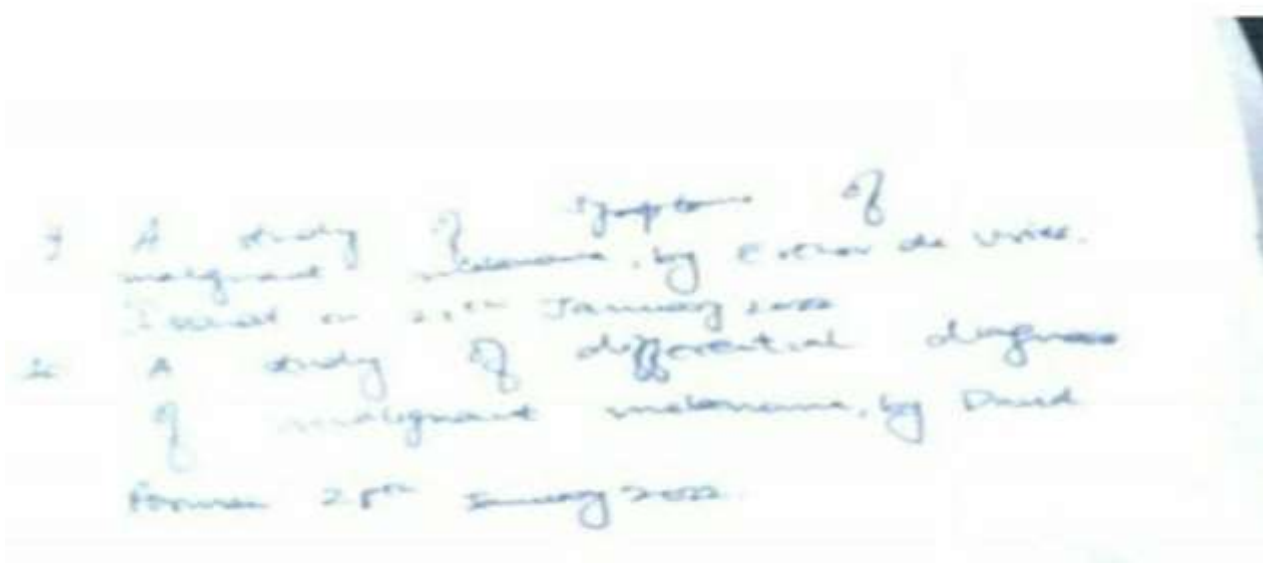 A study of symptoms of
malignant melanoma, by Esther de Vries.
on January 2022
2. A study of differential diagnosis
of malignant melanoma, by David
28th January 2022.